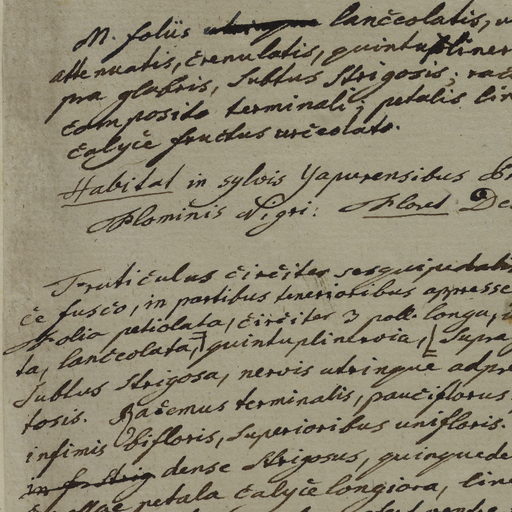 M. foliis utrinque lanceolatis,
attenuatis, crenulatis, quintupliner
pra glabris, subtus strigosis; rac
composito terminali; petalis lin
calyce fructus urceolato.
Habitat in sylvis Yapurensibus
Fluminis Nigri: Floret De
Fruticulus circiter sesquipedalis
ce fusco, in partibus tenerioribus appresse
Folia petiolata, circiter 3 poll. longa,
ta, lanceolata, quintuplinervia, supra
subtus strigosa, nervis utrinque adpre
tosis. Racemus terminalis, pauciflorus
infimis bifloris, superioribus unifloris.
dense strigosus, quinquede
petala calyce longiora, line